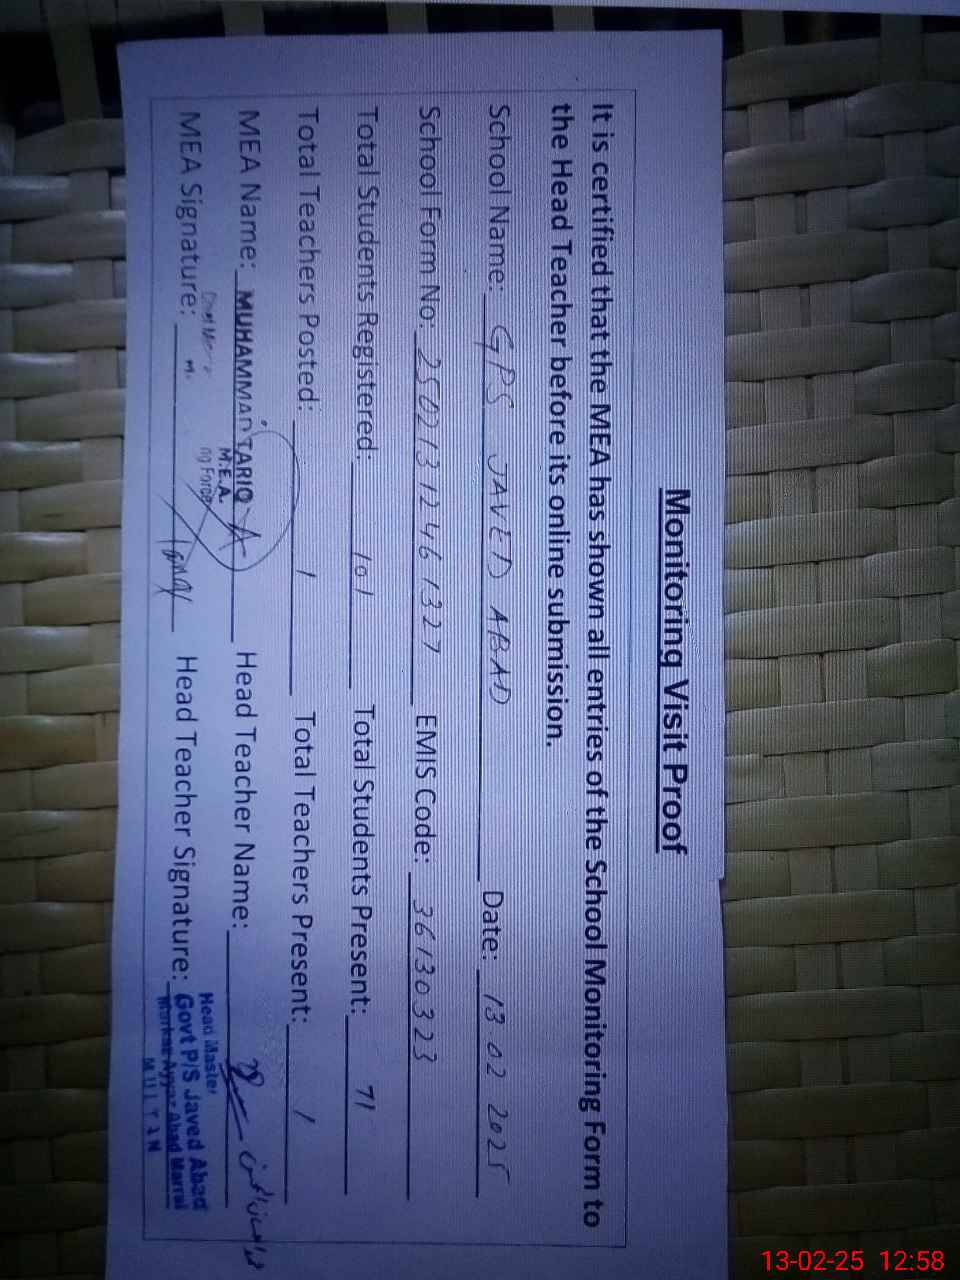 Monitoring Visit Proof
It is certified that the MEA has shown all entries of the School Monitoring Form to
the Head Teacher before its online submission.
School Name: GPS JAVED ABAD Date: 13 02 2025
School Form No: 25021312461327 EMIS Code: 36130323
Total Students Registered: 101 Total Students Present: 71
Total Teachers Posted: 1 Total Teachers Present: 1
MEA Name: MUHAMMAD TARIQ Head Teacher Name:
M.E.A.
MEA Signature: Head Teacher Signature:
Head Master
Govt P/S Javed Abad
Markaz Ayyaz Abad Marral
MULTAN
13-02-25 12:58